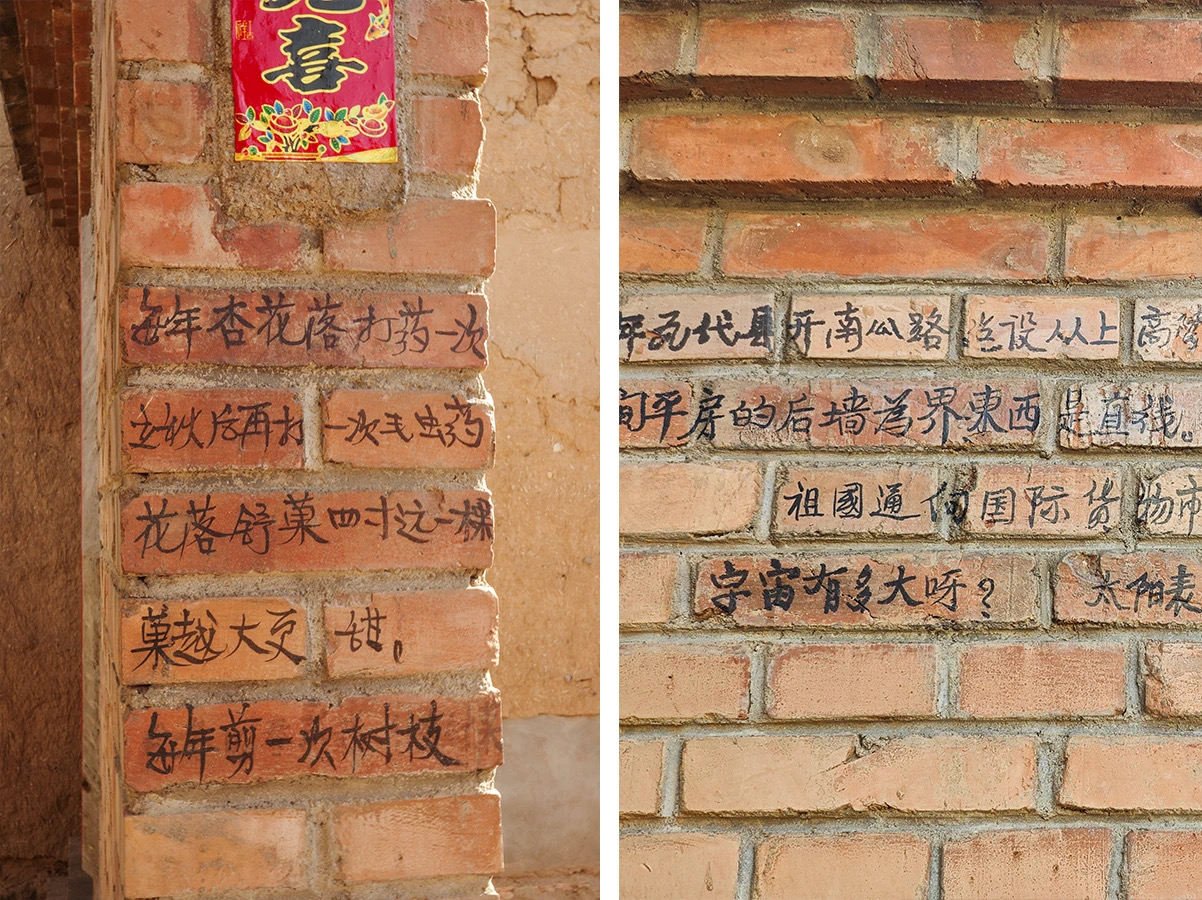 喜
每年杏花落打药一次
立秋后再打一次毛虫药
花落舒菓四寸远一棵
菓越大更甜。
每年剪一次树枝
年 代县开南瓜路 设从上高
平房的后墙為界東西是直线。
祖國通向国际货物市
宇宙有多大呀？太阳表